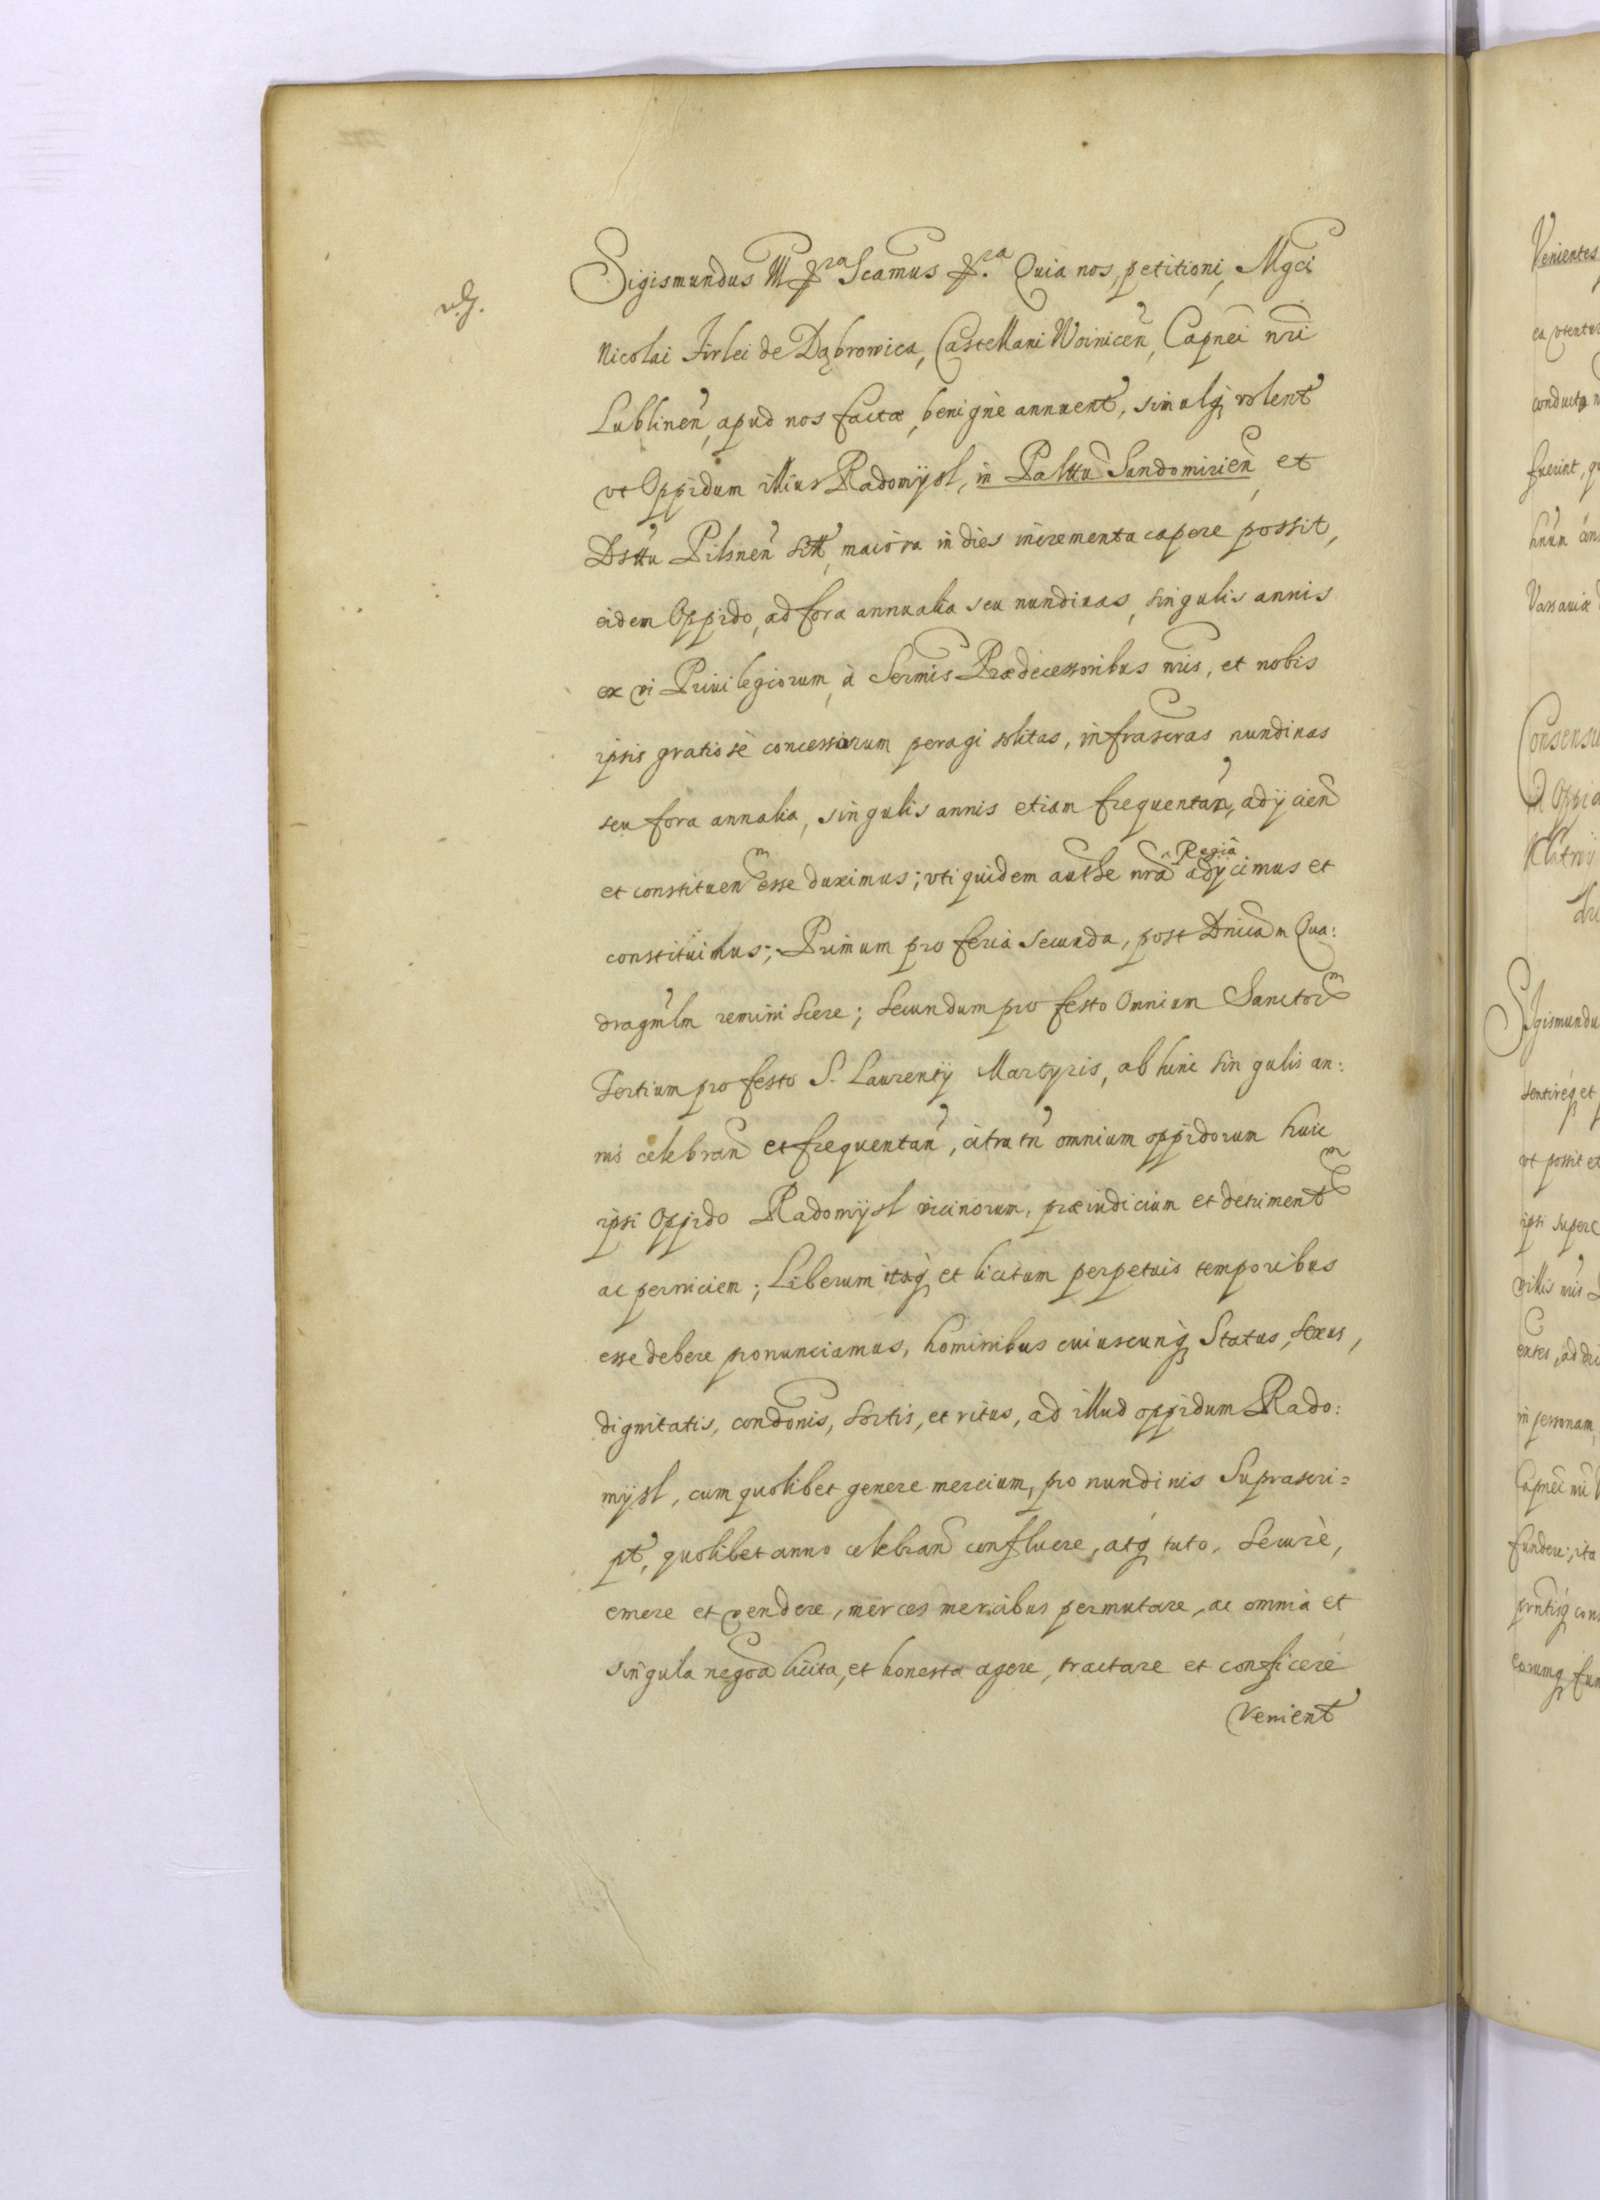 Sigismundus III &ra Scamus &ra. Quia nos, petitioni, Mgci
Nicolai Firlei de Dąbrowica, Castellani Woinicen, Capnei nri
Lublinen, apud nos factæ, benignè annuent, simulq volent
vt Oppidum illius Radomÿsl, in Palttu Sandomirien, et
Dsttu Pilsnen sitt, maiora in dies incrementa capere possit,
eidem Oppido, ad fora annualia seu nundinas, singulis annis
ex vi Priuilegiorum, à Sermis Prædecessoribus nris, et nobis
ipsis gratiosè concessorum peragi solitas, infrascras nundinas
seu fora annalia, singulis annis etiam frequentan, adÿcien
et constituen esse duximus; vti quidem authe nra Regia adÿcimus et
constituimus; Primum pro feria secunda, post Dnicam Qua:
dragmlm reminiscere; Secundum pro festo Omnium Sanctorm
Tertium pro festo S. Laurentÿ Martyris, ab hinc singulis an:
nis celebran et frequentan, citra tn omnium oppidorum huic
ipsi Oppido Radomÿsl vicinorum, præiudicium et detrimentm
ac perniciem; Liberum itaq et licitum perpetuis temporibus
esse debere pronunciamus, hominibus cuiuscunq Status, sexus,
dignitatis, condonis, sortis, et ritus, ad illud oppidum Rado:
mÿsl, cum quolibet genere mercium, pro nundinis Suprascri=
pt, quolibet anno celebran confluere, atq tuto, securè,
emere et vendere, merces mercibus permutare, ac omnia et
singula negoa licita, et honesta agere, tractare et conficere
Venient
Venientes
ea
conducta
fuerint,
Varsauiæ
Consensu
Oppid
Sigismundu
sentireq et
vt possit et
ipsi super
villis nris
in personam
Capnei nri
fundere, ita
earumq fun